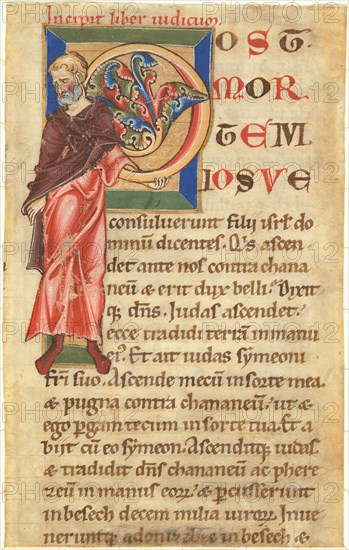 Incipit liber iudicum.
POST
MOR
TEM
IOSVE
consuluerunt filij isrł do
minū dicentes. Qis ascen
det ante nos contra chana
neū & erit dux belli? Dixit
q; dn̄s. Iudas ascendet.
ecce tradidi terrā in manu
ei'. Et ait iudas symeoni
fri suo. Ascende mecū in sorte mea.
& pugna contra chananeū. ut &
ego pgam tecum in sorte tua. Et a
bijt cū eo symeon. Ascenditq; iudas.
& tradidit dn̄s chananeū ac phere
zeū in manus eoꝝ. & pcusserunt
in besech decem milia uiroꝝ. Inue
neruntq; adonibe in besech &